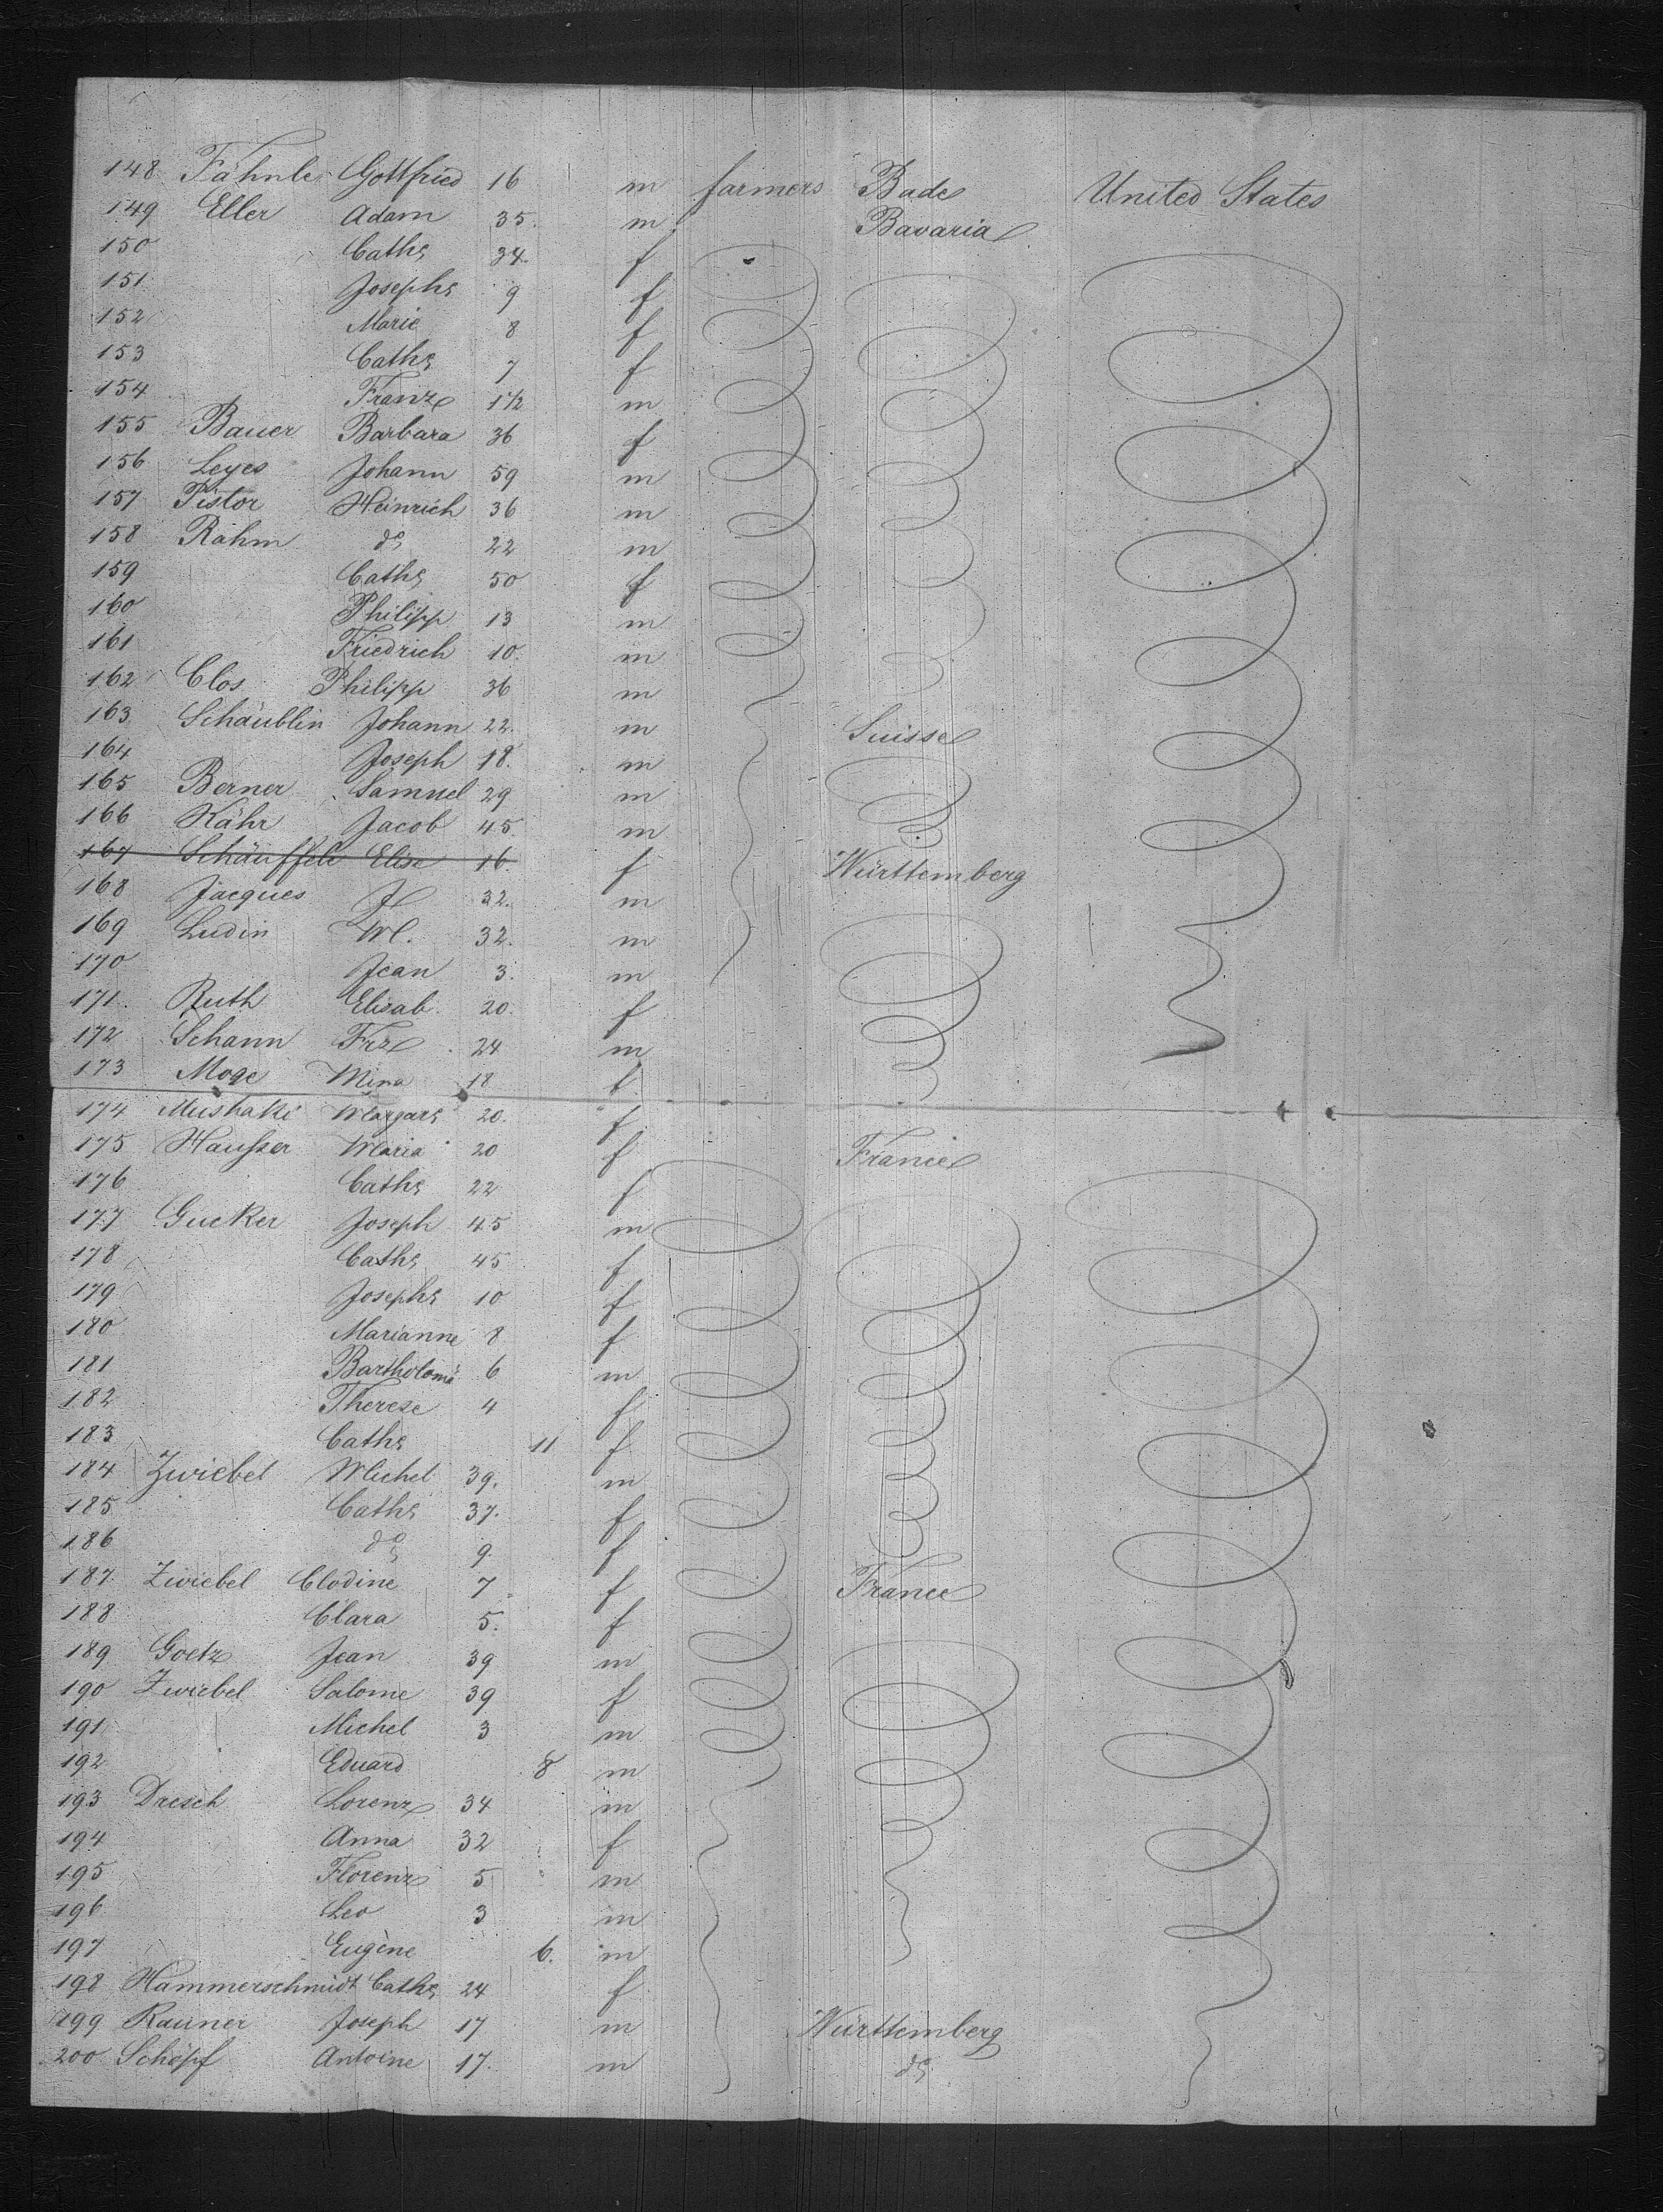 148 Fähnle Gottfried 16 m farmers Bade United States
149 Eller Adam 35. m Bavaria
150 Caths 34. f
151 Josephs 9 f
152 Marie 8 f
153 Caths 7 f
154 Franz 1 1/2 m
155 Bauer Barbara 36 f
156 Leyes Johann 59 m
157 Pistor Heinrich 36 m
158 Rahm do 22 m
159 Caths 50 f
160 Philipp 13 m
161 Friedrich 10. m
162 Clos Philipp 36 m
163 Schäublin Johann 22. m Suisse
164 Joseph 18. m
165 Berner Samuel 29 m
166 Kähr Jacob 45 m
167 Schäuffele Elise 16. f Württemberg
168 Jacques J 32. m
169 Ludin M. 32. m
170 Jean 3. m
171. Ruth Elisab. 20. f
172 Schann Frz 24 m
173 Moge Mina 18 f
174 Mushake Margars 20. f
175 Hausser Maria 20 f France
176 Caths 22 f
177 Gucker Joseph 45 m
178 Caths 45 f
179 Josephs 10 f
180 Marianne 8 f
181 Bartholomé 6 m
182 Therese 4 f
183 Caths 11 f
184 Zwiebel Michel 39. m
185 Caths 37. f
186 do 9. f
187 Zwiebel Clodine 7 f France
188 Clara 5. f
189 Goetz Jean 39 m
190 Zwiebel Salome 39 f
191 Michel 3 m
192 Eduard 8 m
193 Dresch Lorenz 34 m
194 Anna 32 f
195 Florenz 5 m
196 Leo 3 m
197 Eugène 6. m
198 Hammerschmidt Caths 24 f
199 Rauner Joseph 17 m Württemberg
200 Schöpf Antoine 17. m do